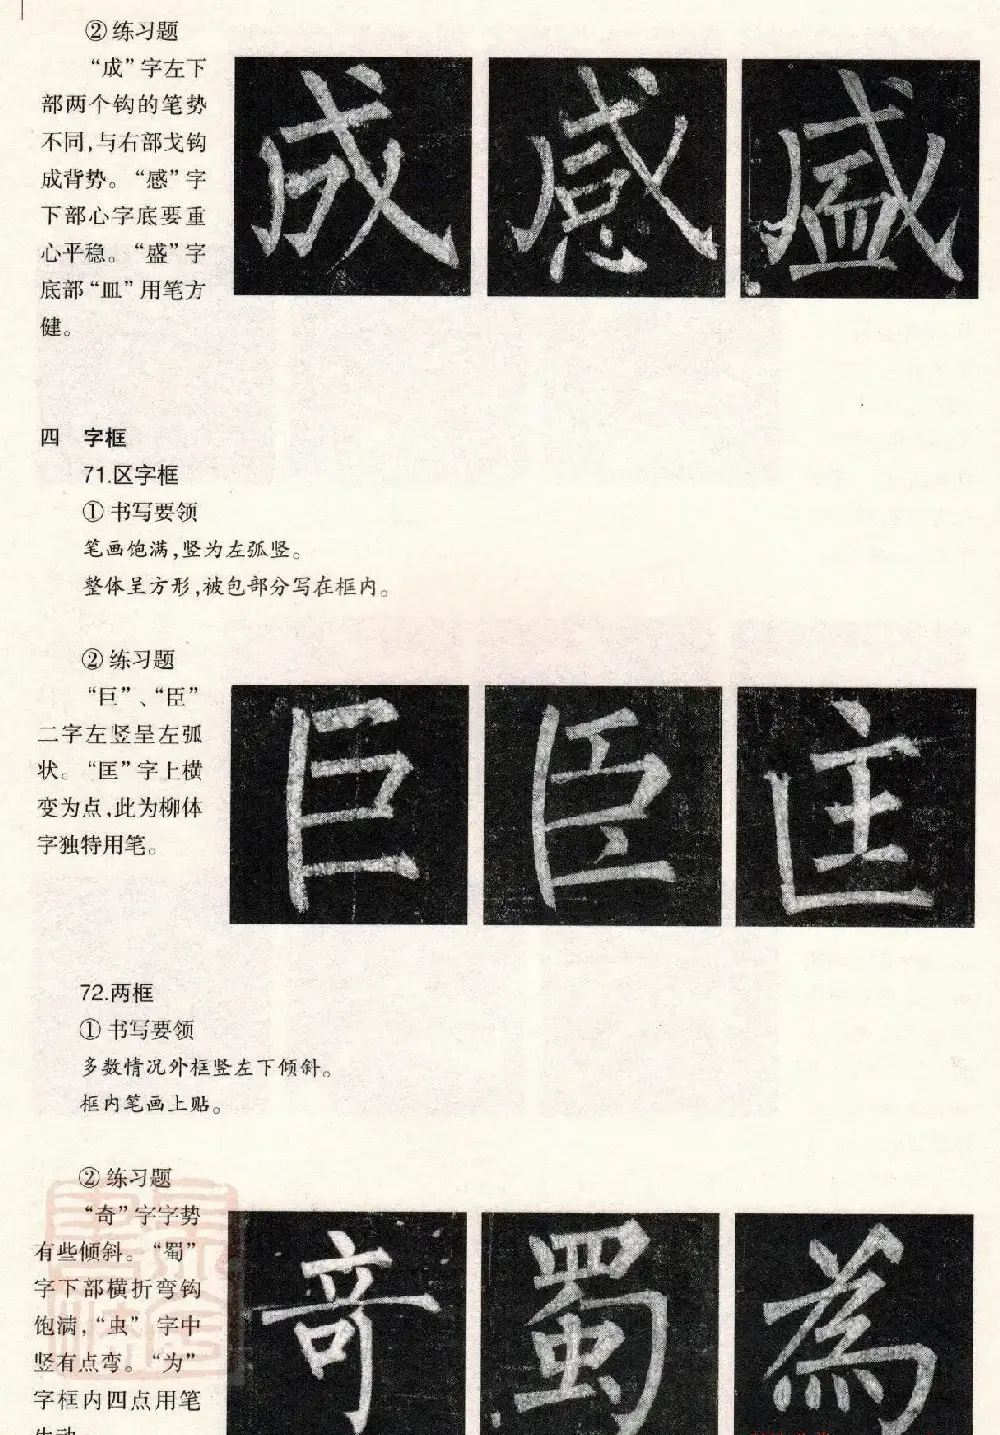 ② 练习题
“成”字左下
部两个钩的笔势
不同,与右部戈钩
成背势。“感”字
下部心字底要重
心平稳。“盛”字
底部“皿”用笔方
健。
成 感 盛
四 字框
71.区字框
① 书写要领
笔画饱满,竖为左弧竖。
整体呈方形,被包部分写在框内。
② 练习题
“巨”、“臣”
二字左竖呈左弧
状。“匡”字上横
变为点,此为柳体
字独特用笔。
巨 臣 匡
72.两框
① 书写要领
多数情况外框竖左下倾斜。
框内笔画上贴。
② 练习题
“奇”字字势
有些倾斜。“蜀”
字下部横折弯钩
饱满,“虫”字中
竖有点弯。“为”
字框内四点用笔
奇 蜀 為